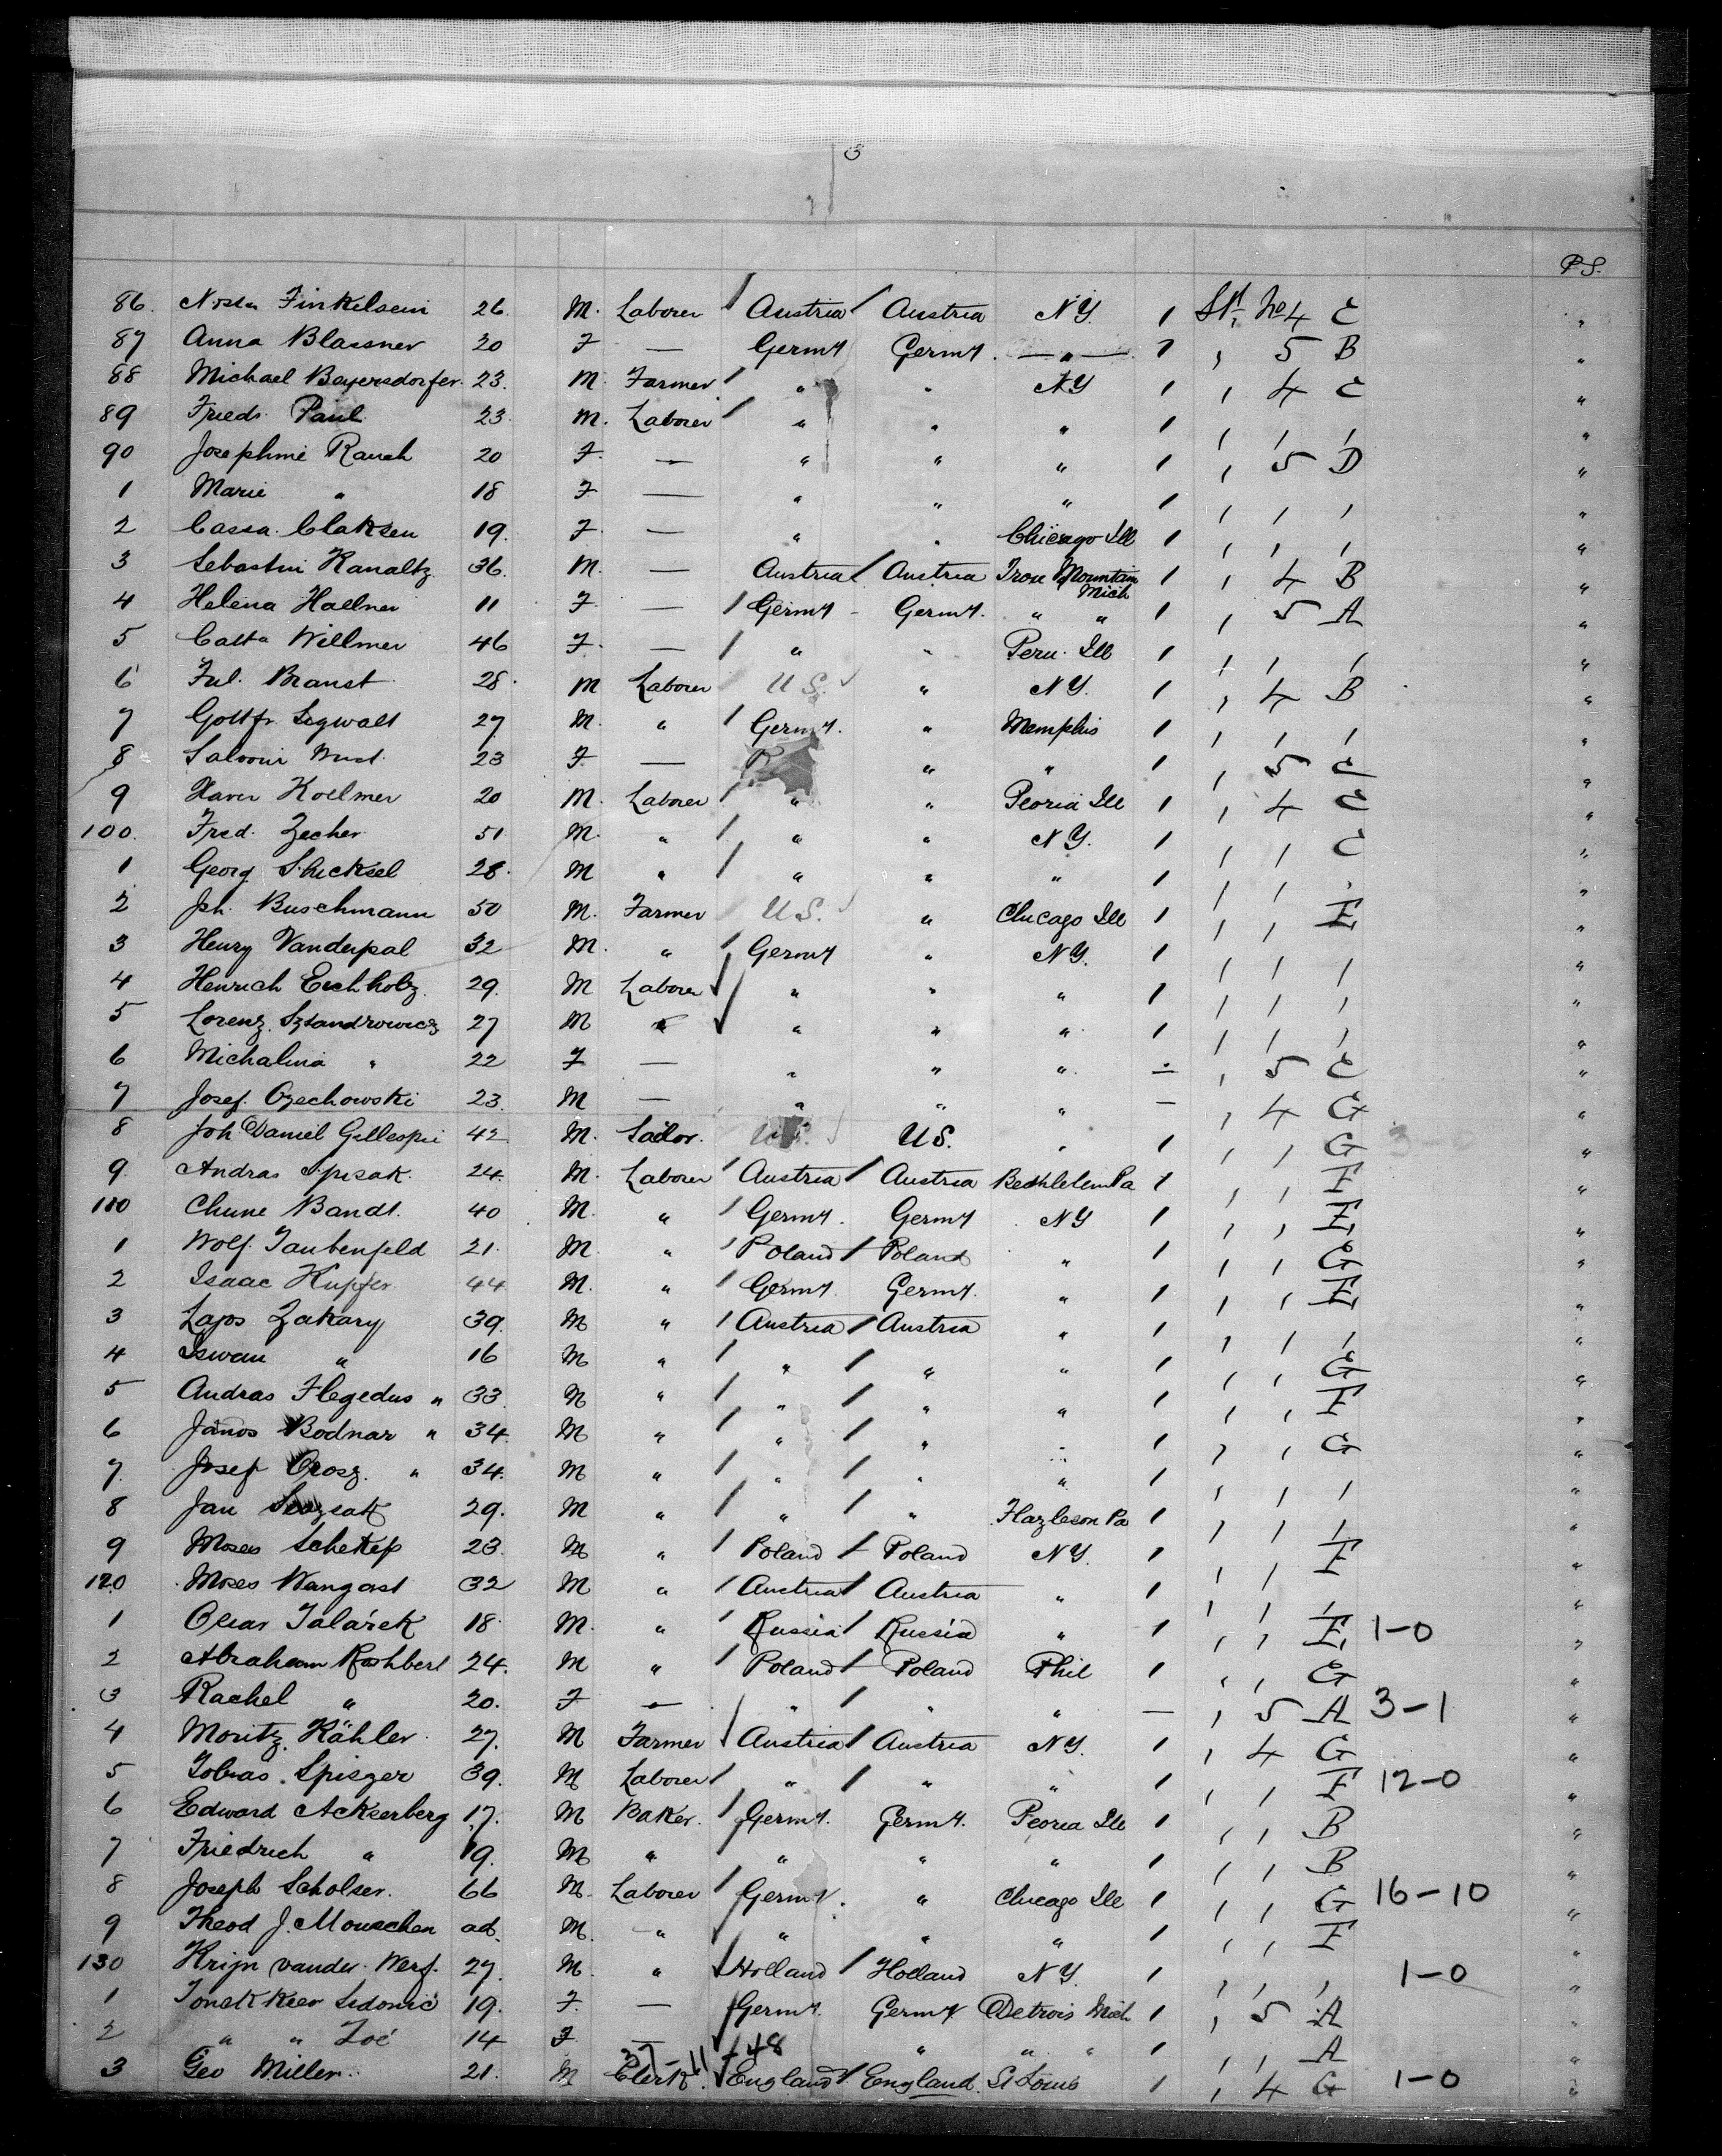 3
P.S.
86. Finkelsein 26. M. Laborer / Austria / Austria N.Y. 1 St. No 4 C "
87 Anna Blassner 20 F — Germy Germy. — " — 1 , 5 B "
88 Michael Beyersdorfer. 23. M. Farmer / " " N.Y 1 , 4 C "
89 Friedr. Paul 23. M. Laborer / " " " 1 , , , "
90 Josephine Rauch 20 F. — " " " 1 , 5 D "
1 Marie " 18 F — " " " 1 , , , "
2 19. F. — " " Chicago Ill 1 , , , "
3 Sebastin Kanaltz 36. M. — Austria / Austria Iron Mountain Mich 1 , 4 B "
4 Helena Haellner 11 F — / Germy Germy. " " 1 , 5 A "
5 Willmer 46 F. — / " " Peru. Ill 1 , , , "
6 Jul. Branst 28. M Laborer U.S. ✓ " N.Y. 1 , 4 B "
7 Gottfr. Segwalt 27 M. " / Germy. " Memphis 1 , , , "
8 23 F. — " " 1 , 5 C "
9 Xaver Koellmer 20 M. Laborer / " " Peoria Ill 1 , 4 C "
100. Fred. Zecher 51 M. " / " " N.Y. 1 , , C "
1 Georg 28. M " / " " " 1 , , , "
2 Joh. Buschmann 50 M. Farmer U.S. ✓ " Chicago Ill 1 , , E "
3 Henry Vanderpal 32 M. " / Germy " N.Y. 1 , , , "
4 Henrich Eichholz. 29. M Laborer ✓ " " " 1 , , , "
5 Lorenz. Sztandrowicz 27 M " ✓ " " " 1 , , , "
6 Michalina " 22 F — " " " — , 5 C "
7 Josef. Ozechowski 23. M — " " " — , 4 G "
8 Joh. Daniel Gillespie 42 M. Sailor. U.S. ✓ U.S. " 1 , , G "
9. Andras Spisak. 24. M. Laborer / Austria / Austria Bethlehem Pa 1 , , F "
110 Chune Bandt. 40 M. " / Germy. Germy N.Y 1 , , E "
1 Wolf. Taubenfeld 21. M. " / Poland / Poland " 1 , , G "
2 Isaac Kupfer 44 M. " / Germy. Germy. " 1 , , E "
3 Lajos Zakary 39. M " / Austria / Austria " 1 , , , "
4 Iswan " 16 M " / " / " " 1 , , G "
5 Andras Hegedus " 33 M " / " / " " 1 , , F "
6 János Bodnar " 34. M " / " / " " 1 , , G "
7. Josef Orosz. " 34. M " / " / " " 1 , , , "
8 Jan 29. M " / " / " Hazleson Pa 1 , , , "
9 Moses Schekep 23. M " / Poland / Poland N.Y. 1 , , F "
120 Moses Wangast 32 M " / Austria / Austria " 1 , , , "
1 18. M. " / Russia / Russia " 1 , , E 1-0 "
2 Abraham 24. M " / Poland / Poland Phil 1 , , G "
3 Rachel " 20. F — / " / " " — , 5 A 3-1 "
4 Moritz. Kähler 27. M Farmer / Austria / Austria N.Y. 1 , 4 G "
5 Tobias. Spiszer 39. M Laborer / " / " " 1 , , F 12-0 "
6 Edward Ackserberg 17. M Baker. / Germy. Germy. Peoria Ill 1 , , B "
7 Friedrich " 19. M " " " " 1 , , B "
8 Joseph Scholser. 66 M. Laborer / Germy. " Chicago Ill 1 , , G 16-10 "
9 Theod J. Mouschen ad. M. " / " " " 1 , , F "
130 Krijn vander Werf. 27. M. " / Holland / Holland N.Y. 1 , , , 1-0 "
1 19. F. — / Germy. Germy Detrois Mich 1 , 5 A "
2 " " Zoé 14 F — " " " 1 , , A "
37-11-48
3 Geo Miller. 21. M Clerk. / England / England. St Louis 1 , 4 G 1-0 "